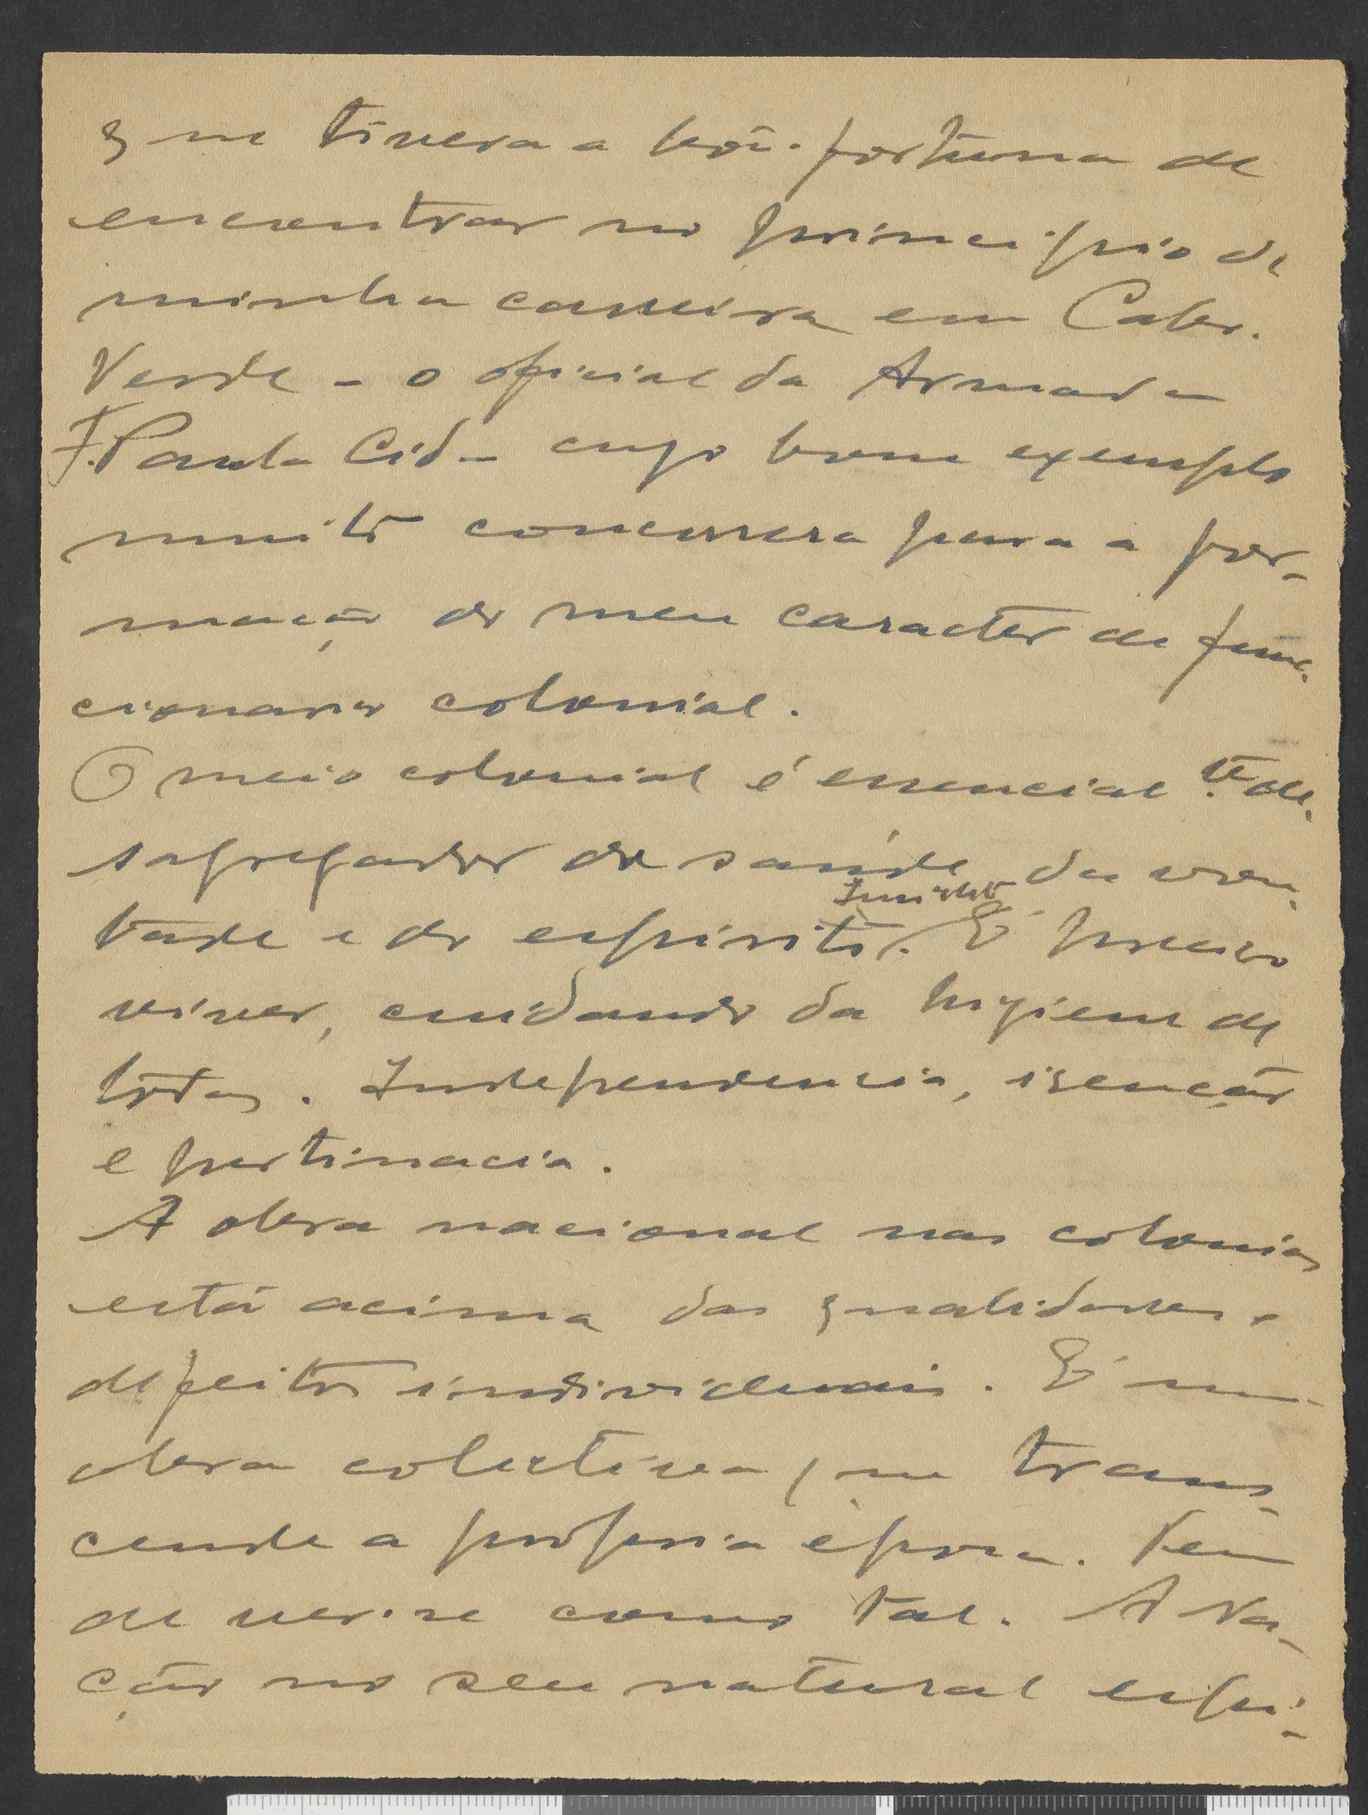 que tivera a bôa fortuna de
encontrar no principio da
minha carreira em Cabo-
Verde - o oficial da Armada
F. Paula Cid - cujo bom exemplo
muito concorrera para a for-
mação do meu caracter de func-
cionario colonial.
O meio colonial é essencialte de-
sagregador da saúde, da von-
tade e do espirito. É preciso
viver, cuidando da higiene de
todas. Independencia, isenção
e pertinacia.
A obra nacional nas colonias
está acima das qualidades e
defeitos individuais. É uma
obra colectiva, que trans-
cende a propria época. Tem
de ver-se como tal. A Na-
ção no seu natural espi-